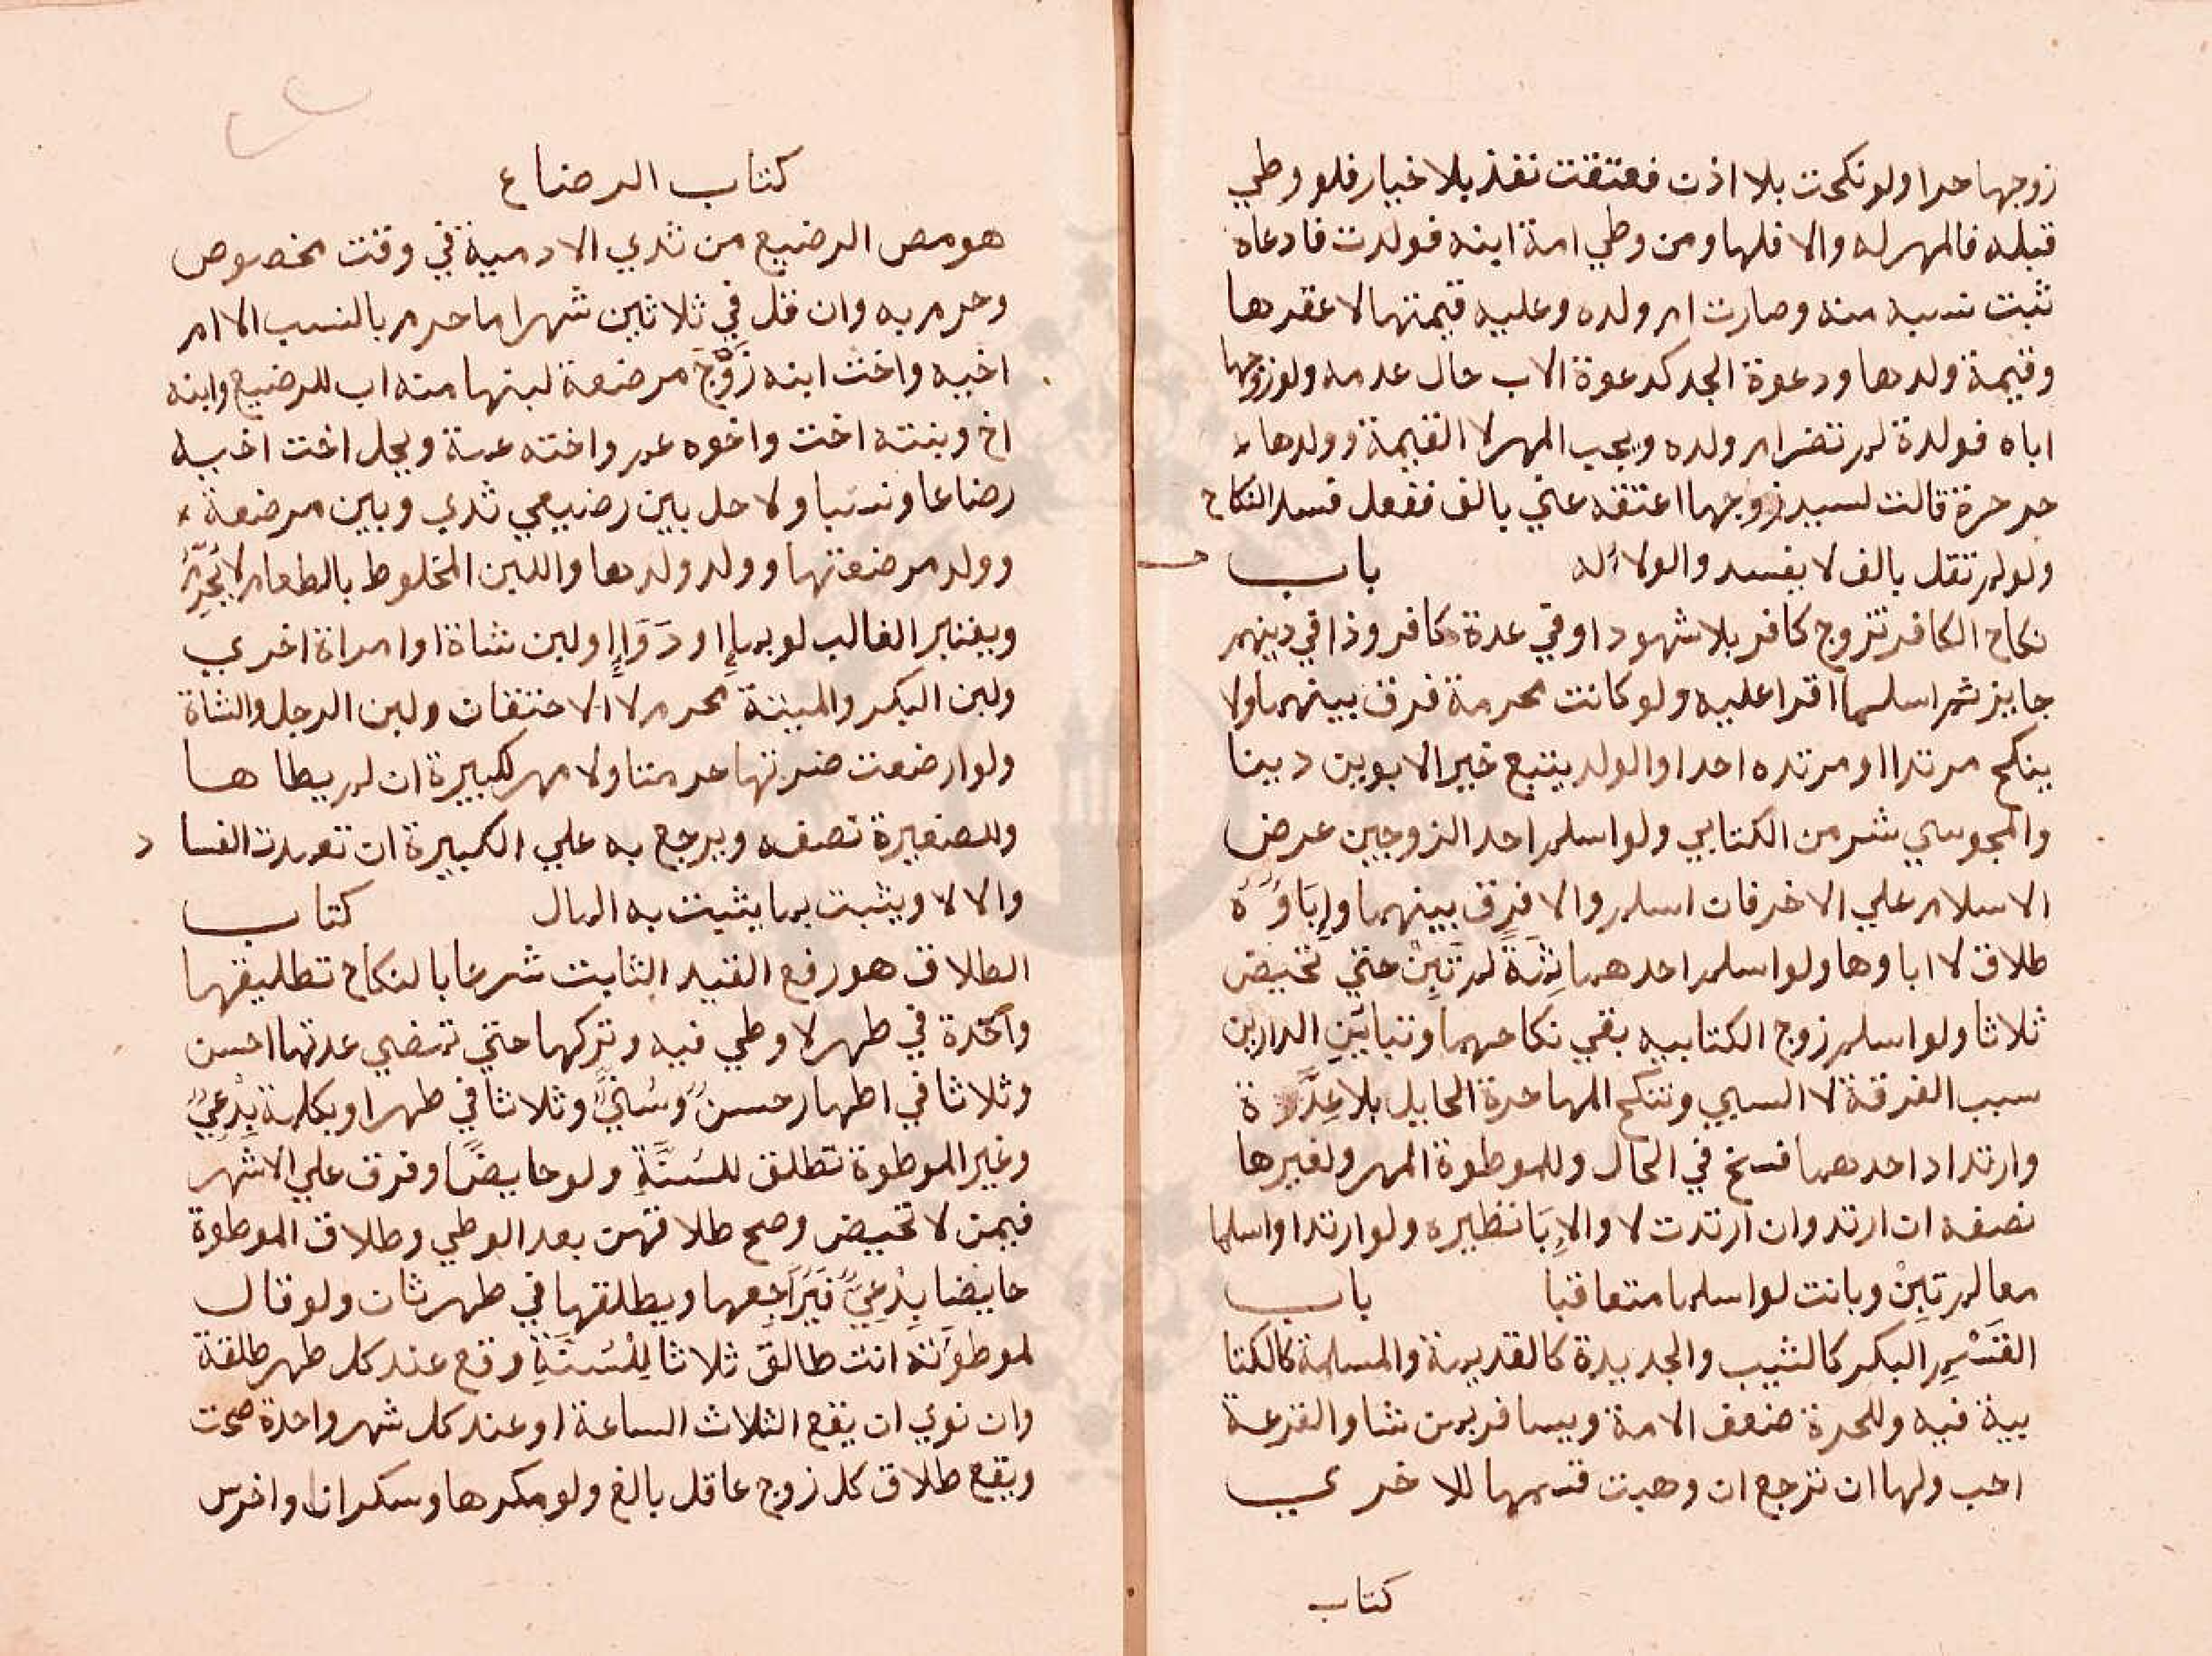 زوجها حرا ولو نكحت بلا اذن فعتقت نفذ بلا خيار فلو وطي
قبله فالمهر له والا فلها ومن وطي امة ابنه فولدت فادعاه
ثبت نسبه منه وصارت ام ولده وعليه قيمتها لا عقرها
وقيمة ولدها ودعوة الجد كدعوة الاب حال عدمه ولو زوجها
اباه فولدة لم تضر ام ولده ويجب المهر لا القيمة وولدها
حر حرة قالت لسيد زوجها اعتقه عني بالف ففعل فسد النكاح
ولو لم تقل بالف لا يفسد والولاء له باب
نكاح الكافر تزوج كافر بلا شهود او في عدة كافر وذا في دينهم
جايز ثم اسلما اقرا عليه ولو كانت محرمة فرق بينهما ولا
ينكح مرتدا او مرتده احدا والولد يتبع خير الابوين دينا
والمجوسي شر من الكتابي ولو اسلم احد الزوجين عرض
الاسلام علي الاخر فان اسلم والا فرق بينهما وإباؤه
طلاق لا اباوها ولو اسلم احدهما ثمة لم تبن حتي تحيض
ثلاثا ولو اسلم زوج الكتابيه بقي نكاحهما وتباين الدارين
سبب الفرقة لا السبي وتنكح المهاجرة الحايل بلا عدة
وارتداد احدهما فسخ في الحال وللموطوة المهر ولغيرها
نصفه ان ارتد وان ارتدت لا والإبا نظيره ولو ارتدا واسلما
معا لم تبن وبانت لو اسلما متعاقبا باب
القسم البكر كالثيب والجديدة كالقديمة والمسلمة كالكتا
بية فيه وللحرة ضعف الامة ويسافر بمن شا والقرعة
احب ولها ان ترجع ان وهبت قسمها للاخري
كتاب
كتاب الرضاع
هو مص الرضيع من ثدي الادمية في وقت مخصوص
وحرم به وان قل في ثلاثين شهرا ما حرم بالنسب الا ام
اخيه واخت ابنه زوج مرضعة لبنها منه اب للرضيع وابنه
اخ وبنته اخت واخوه عم واخته عمة ويحل اخت اخيه
رضاعا ونسبا ولا حل بين رضيعي ثدي وبين مرضعة
وولد مرضعتها وولد ولدها واللبن المخلوط بالطعام لا يحرم
ويعتبر الغالب لو بماء او دواء او لبن شاة او امراة اخري
ولبن البكر والميتة محرم لا الاحتقان ولبن الرجل والشاة
ولو ارضعت ضرتها حرمتا ولا مهر للكبيرة ان لم يطاها
وللصغيرة نصفه ويرجع به علي الكبيرة ان تعمدت الفساد
والا لا ويثبت بما يثبت به المال كتاب
الطلاق هو رفع القيد الثابت شرعا بالنكاح تطليقها
واحدة في طهر لا وطي فيه وتركها حتي تمضي عدتها احسن
وثلاثا في اطهار حسن وسني وثلاثا في طهر او بكلمة بدعي
وغير الموطوة تطلق للسنة ولو حايضا وفرق علي الاشهر
فيمن لا تحيض وصح طلاقهن بعد الوطي وطلاق الموطوة
حايضا بدعي فيراجعها ويطلقها في طهر ثان ولو قال
لموطوئته انت طالق ثلاثا للسنة وقع عند كل طهر طلقة
وان نوي ان يقع الثلاث الساعة او عند كل شهر واحدة صحت
ويقع طلاق كل زوج عاقل بالغ ولو مكرها وسكران واخرس